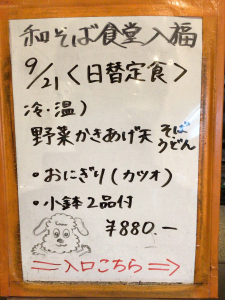 和そば食堂入福
9/21<日替定食>
冷・温)
野菜かきあげ天 そば
うどん
・おにぎり(カツオ)
・小鉢2品付
¥880.-
入口こちら